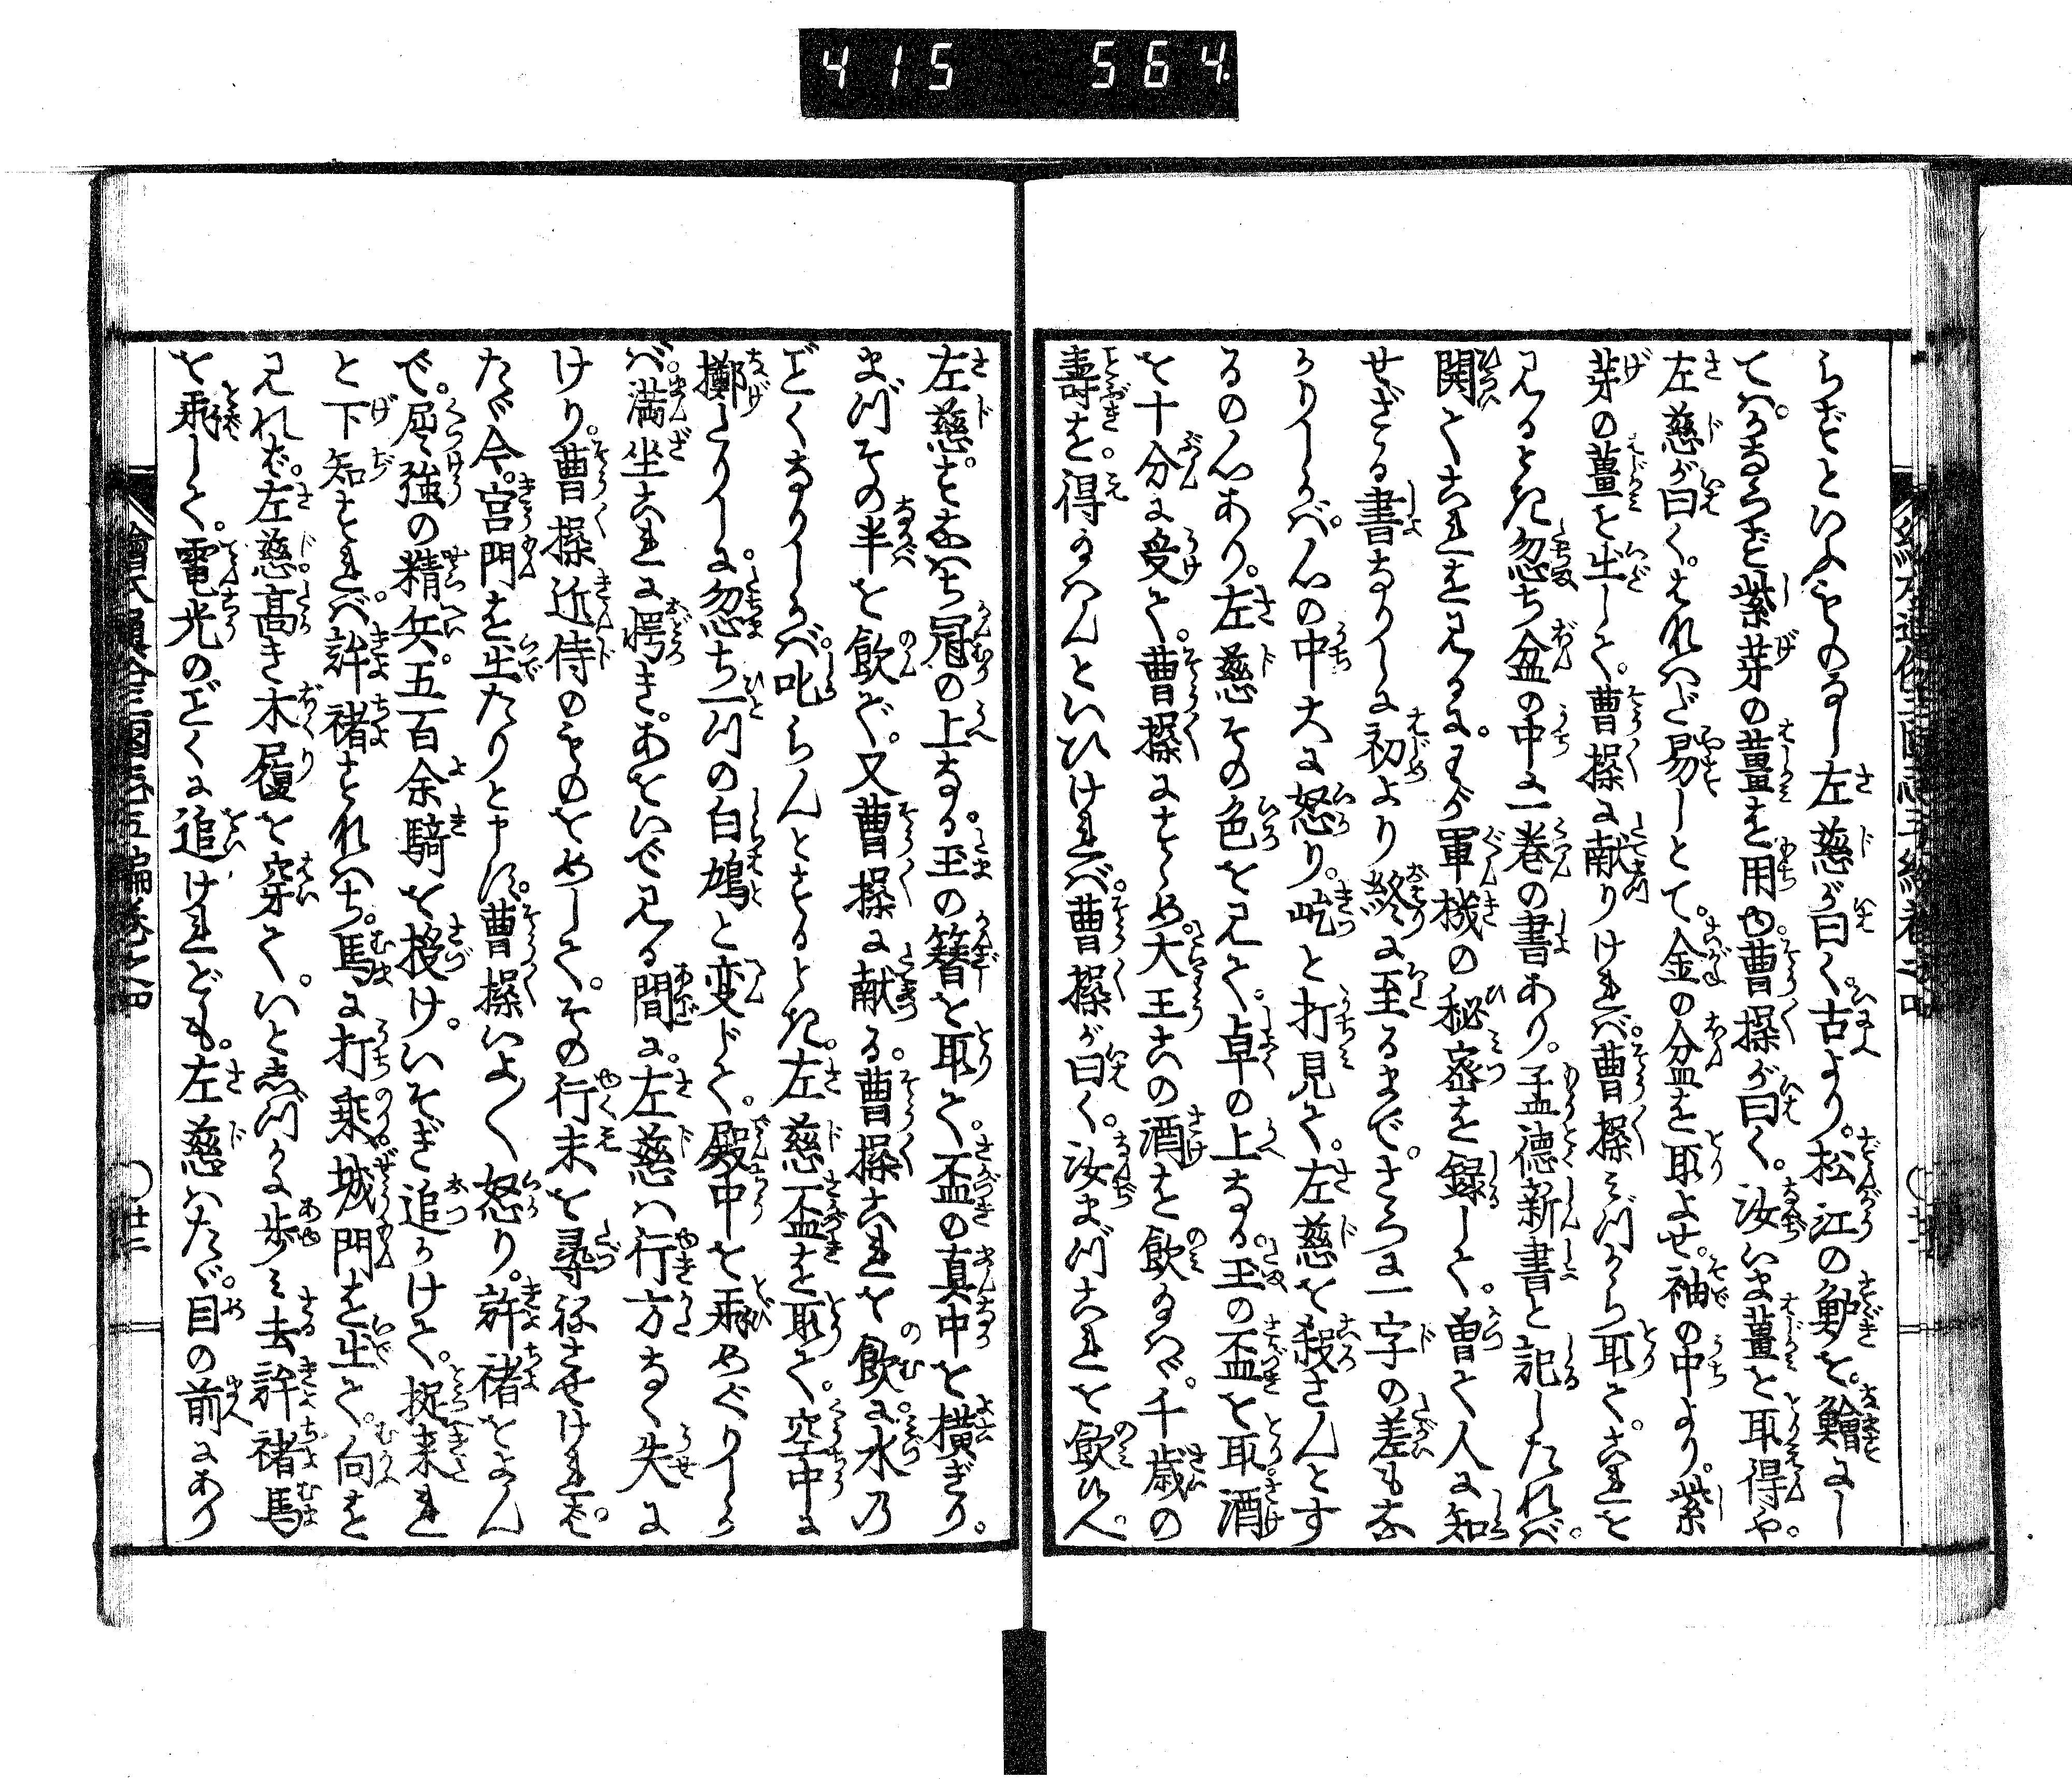 415 564.
らずといふものなし左慈が曰く。古より。松江の鱸を。鱠にし
ては。かならず紫芽の薑を用ゆ。曹操が曰く。汝いま薑を取得や。
左慈が曰く。それハいと易しとて。金の盆を取よせ。袖の中より。紫
芽の薑を出して。曹操に献りければ。曹操みづから取て。これを
見るとき忽ち盆の中に一巻の書あり。孟徳新書と記したれば。
開てこれを見るに。わが軍機の秘密を録して。曽て人に知
せざる書なりしに初より終に至るまで。さらに一字の差もな
かりしかば。心の中大に怒り。屹と打見て。左慈を殺さんとす
るの心あり。左慈その色を見て。卓の上なる。玉の盃を取酒
を十分に受て。曹操にすゝめ。大王この酒を飲給へば。千歳の
壽を。得給ハんといひければ。曹操が曰く。汝まづこれを飲ひ。
左慈。すなハち冠の上なる。玉の簪を取て。盃の真中を横ぎり。
まづその半を飲で。又曹操に献る。曹操これを飲に。水乃
ごとくなりしかば。叱らんとするとき。左慈盃を取て。空中に
擲たりしに。忽ち一つの白鳩と変じて。殿中を飛めぐりしか
ば。満坐これに愕き。あをいで見る間に。左慈ハ行方なく失に
けり。曹操近侍のものをめして。その行末を尋ねさせければ。
たゞ今。宮門を出たりと申に。曹操いよ〱怒り。許褚をよん
で。屈強の精兵。五百余騎を授け。いそぎ追かけて。捉来れ
と下知すれば。許褚すなハち。馬に打乗。城門を出て。向を
見れば。左慈高き木履を穿て。いとしづかに歩み去許褚馬
を飛して。電光のごとくに追けれども。左慈ハたゞ。目の前にあり